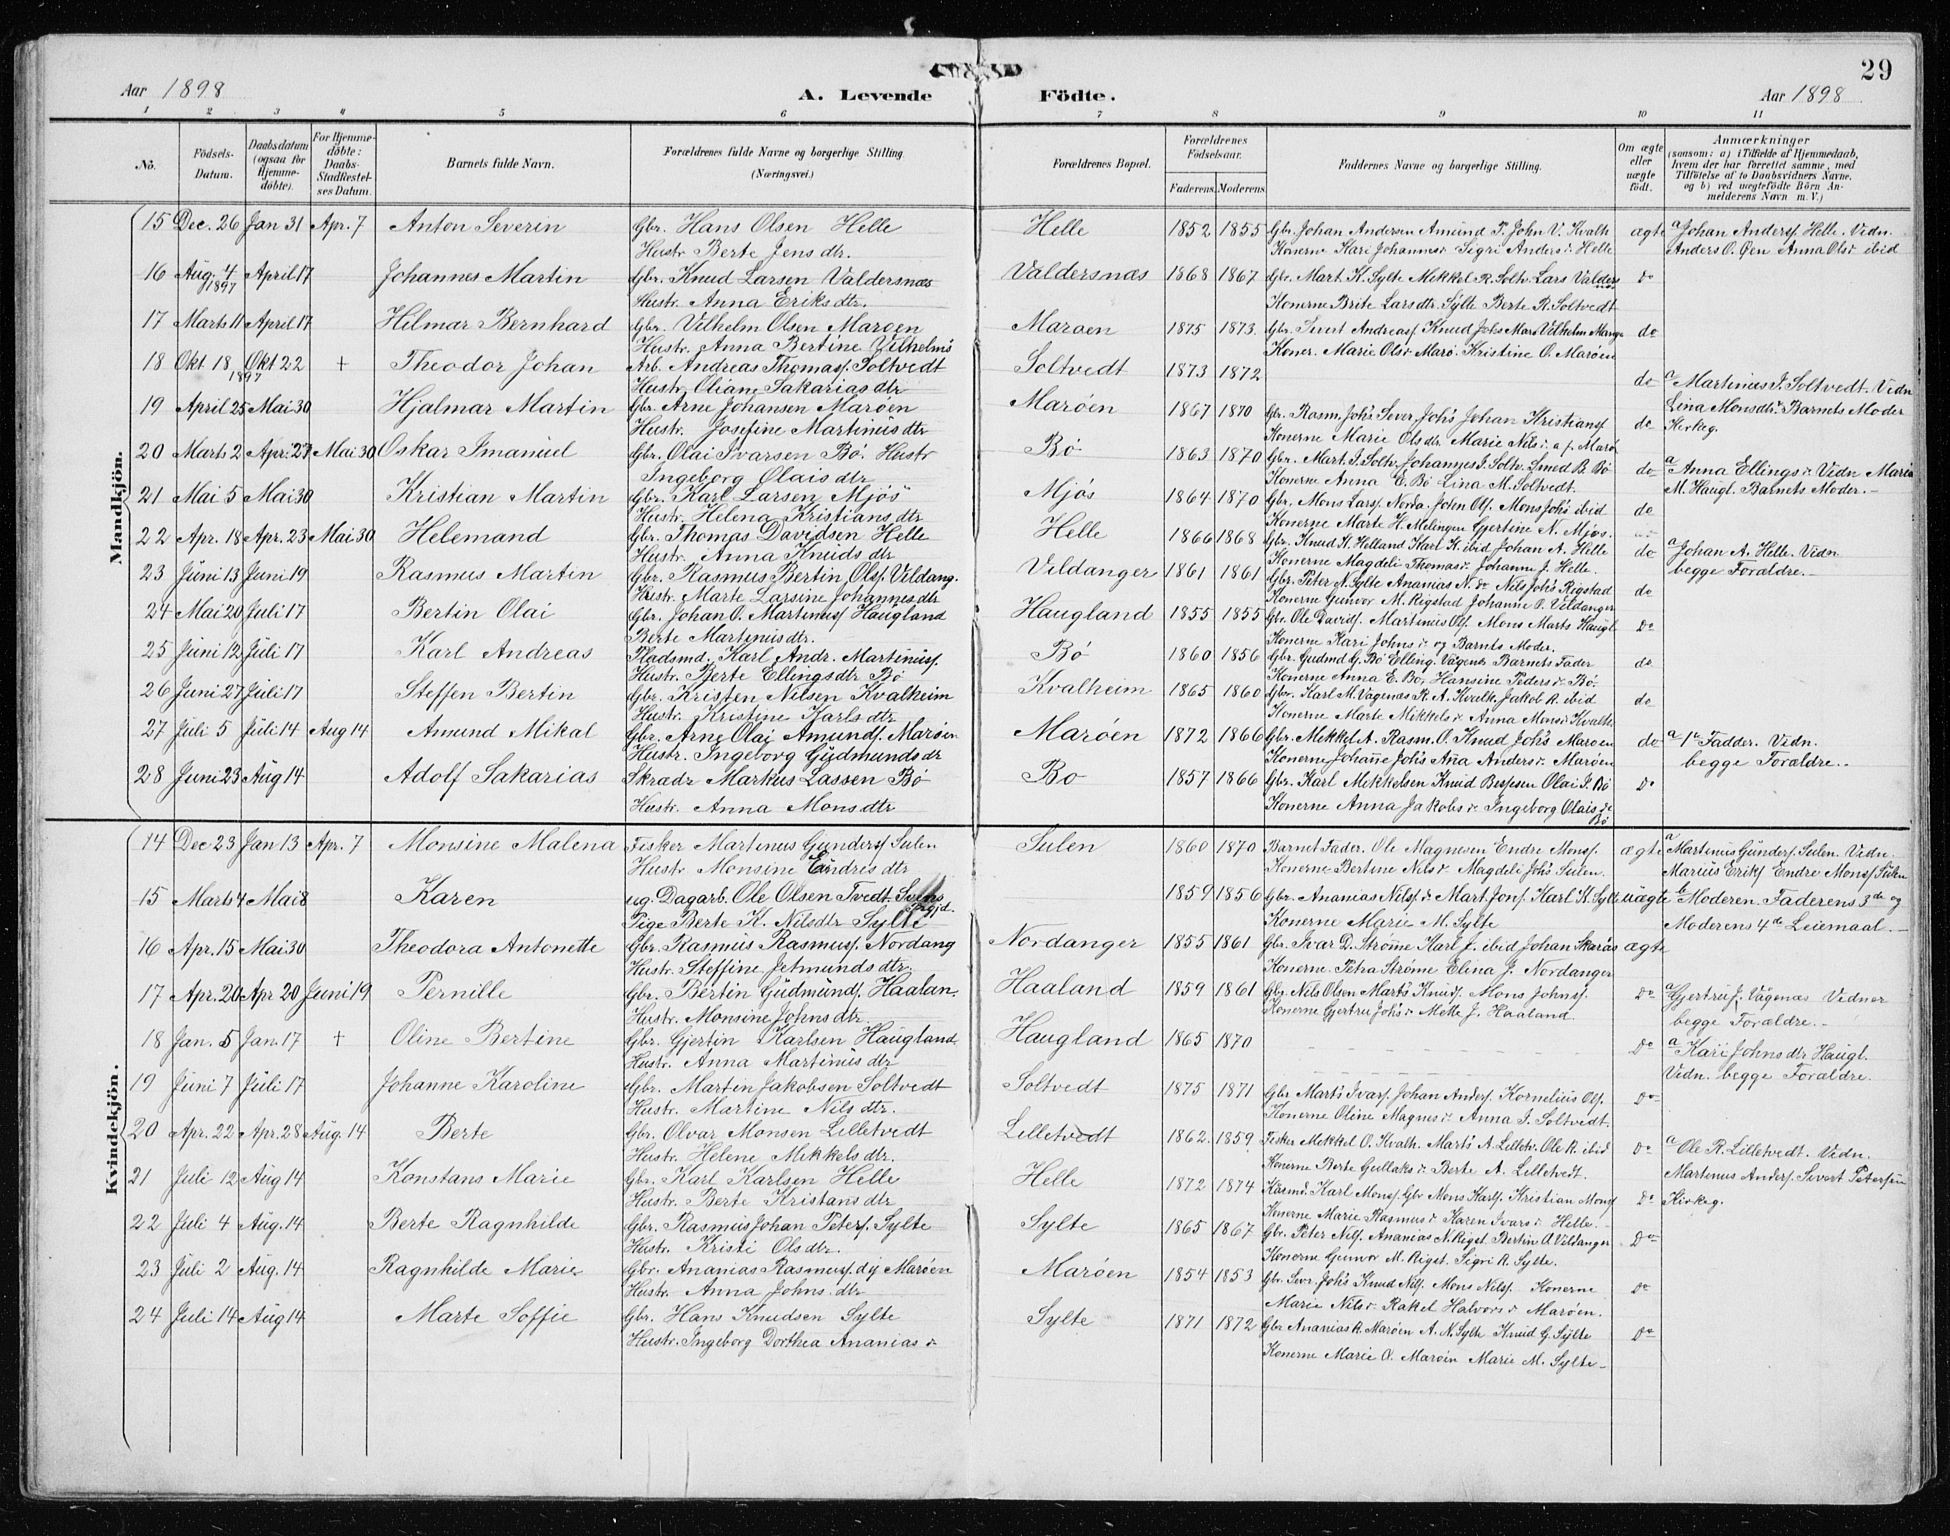 29
Aar 1898
A. Levende Födte.
Aar 1898
1 2 3 4 5 6 7 8 9 10 11
No. Födsels-Datum. Daabsdatum (ogsaa for Hjemme-döbte). For Hjemme-döbte: Daabs-Stadfæstel-ses Datum. Barnets fulde Navn. Forældrenes fulde Navne og borgerlige Stilling (Næringsvei.) Forældrenes Bopæl. Forældrenes Födselsaar. Faderens. Moderens. Faddernes Navne og borgerlige Stilling. Om ægte eller uægte födt. Anmærkninger (saasom: a) i Tilfælde af Hjemmedaab, hvem der har forrettet samme, med Tilföielse af to Daabsvidners Navne, og b) ved uægtefödte Börn An-melderens Navn m. V.)
Mandkjön.
15 Dec. 26 Jan 31 Apr. 7 Anton Severin Gbr. Hans Olsen Helle Helle 1852 1855 Gbr. Johan Andersen Amund P. John V. Kvalh ægte a Johan Anders. Helle. Vidn.
Hustr Berte Jens dtr. Konerne Kari Johannesr Sigri Andersr. Helle Anders O. Øen Anna Olsr ibid
16 Aug. 4 1897 April 17 Johannes Martin Gbr. Knud Larsen Valdersnæs Valdersnæs 1868 1867 Gbr. Mart. K. Sylte Mekkel R. Soltv. Lars Valdersnæs do
Hustr. Anna Eriks dtr. Konerne Brite Larsdtr. Sylte Berte R. Soltvedt
17 Marts 11 April 17 Hilmar Bernhard Gbr. Vilhelm Olsen Marøen Marøen 1875 1873. Gbr. Sivert Andreas. Knud Johs Marø Vilhelm do
Hustr. Anna Bertine Vilhelms Koner. Marie Olsr Marø. Kristine O. Marøen
18 Okt 18 1897 Okt 22 + Theodor Johan Arb. Andreas Thomas. Soltvedt Soltvedt 1873 1872 do a Martinus J. Soltvedt. Vidn
Hustr. Oliane Sakarias dtr Lina Monsdtr. Barnets Moder
19 April 25 Mai 30 Hjalmar Martin Gbr. Arne Johansen Marøen Marøen 1867 1870 Gbr. Rasm. Johs Sever Johs Johan Kristians do Kirkeg.
Hustr. Josefine Martinus dtr Konerne Marie Ols dtr. Marie Nilsr. a. p. Marø
20 Marts 2 Apr. 27 Mai 30 Oskar Imanuel Gbr. Olai Ivarsen Bø. Hustr Bø 1863 1870 Gbr. Mart. J. Soltv. Johannes J. Soltv. B. Bø do a Anna Ellingsr. Vidn Maria
Ingeborg Olais dtr Konerne Anna E. Bø Lina M. Soltvedt. M. Haugl. Barnets Moder.
21 Mai 5 Mai 30 Kristian Martin Gbr. Karl Larsen Mjøs Mjøs 1864 1870 Gbr. Mons Lars. Norda. John Ols. Mons Johs ibid do
Hustr. Helena Kristians dtr Konerne Marte H. Melingen Gjertine N. Mjøs.
22 Apr. 18 Apr. 23 Mai 30 Helemand Gbr. Thomas Davidsen Helle Helle 1866 1868 Gbr. Knud K. Helland Karl K. ibid Johan A. Helle do a Johan A. Helle. Vidn
Hustr. Anna Knuds dtr Konerne Magdeli Thomasr. Johanne J. Helle. begge Forældre.
23 Juni 13 Juni 19 Rasmus Martin Gbr. Rasmus Bertin Ols. Vildang. Vildanger 1861 1861 Gbr. Peter N. Sylte Ananias N. do Nils Johs Rigstad do
Hustr. Marte Larsine Johannes dtr Konerne Gunvor M. Rigstad Johanne P. Vildanger
24 Mai 20 Juli 17 Bertin Olai Gbr. Johan O. Martinus Haugland Haugland 1855 1855 Gbr. Ole Davids. Martinus Ols. Mons Marts Haugl. Do
Berte Martinus dtr. Konerne Kari Johnsr. og Barnts Moder.
25 Juni 12 Juli 17 Karl Andreas Pladsmd. Karl Andr. Martinus. Bø 1860 1856 Gbr. Gudmd G. Bø Elling. Vågenes Barnets Fader do
Hustr. Berte Ellingsdtr Bø Konerne Anna E. Bø, Hansine Pedersr. Bø
26 Juni 27 Juli 17 Steffen Bertin Gbr. Kristen Nilsen Kvalheim Kvalheim 1865 1860 Gbr. Karl M. Vågenæs R. A. Kvalh. Jakob R. ibid do
Hustr. Kristine Karls dtr Konerne Marte Mikkelsr. Anna Monsr Kvalh.
27 Juli 5 Juli 14 Aug 14 Amund Mikal Gbr. Arne Olai Amunds. Marøen Marøen 1872 1866 Gbr. Mekkel A. Rasm. O. Knud Johs Marøen do a 1e Fadder. Vidn.
Hustr. Ingeborg Gudmunds dr Konerne Johane Johs Ana Andersr. Marøen begge Forældre.
28 Juni 23 Aug 14 Adolf Sakarias Skradr Markus Lassen Bø Bø 1857 1866 Gbr. Karl Mikkelsen Knud Olai J. Bø Do
Hustr. Anna Mons dtr Konerne Anna Jakobsr. Ingeborg Olais dr Bø
Kvindekjön.
14 Dec 23 Jan 13 Apr. 7 Monsine Malena Fisker Martinus Gunders. Sulen Sulen 1860 1870 Barnet Fader. Ole Magnesen Endre Mons. ægte a Martinus Gunders. Sulen. Vidn.
Hustr. Monsine Endris dtr Konerne Bertine Nilsr. Magdeli Johs Sulen. Marius Eriks Endre Mons Sulen
15 Marts 4 Mai 8 Karen ug. Dagarb. Ole Olsen Tvedt. 1859 1856 Gbr. Ananias Nils. Mart Jons. Karl K. Sylte uægte b Moderen. Faderens 3de og
Pige Berte K. Nilsdtr Sylte Konerne Marie M. Sylte Moderens 4de Leiemaal.
16 Apr. 15 Mai 30 Theodora Antonette Gbr. Rasmus Rasmus. Nordang Nordanger 1855 1861 Gbr. Ivar D. Strømne Karl J. ibid Johan Skarås ægte
Hustr. Steffine Jetmunds dtr Konerne. Petra Strøme Elina J. Nordanger
17 Apr. 20 Apr 20 Juni 19 Pernille Gbr. Bertin Gudmunds. Haalan. Haaland 1859 1861 Gbr. Nils Olsen Marts Knuds. Mons Johns. Do a Gjertru J. Vågenæs Vidner
Hustr. Monsine Johns dtr. Konerne Gjertru Johsr. Mette J. Haaland begge Forældre.
18 Jan. 5 Jan. 17 + Oline Bertine Gbr. Gjertin Karlsen Haugland Haugland 1865 1870 Do a Kari Johns dtr Haugl.
Hustr. Anna Martinus dtr Vidn. begge Forældre.
19 Juni 7 Juli 17 Johanne Karoline Gbr. Martin Jakobsen Soltvedt Soltvedt 1875 1871 Gbr Marts Ivars. Johan Anders. Kornelius Ols. Do
Hustr. Martine Nils dtr. Konerne Oline Magnesr. Anna I. Soltvedt.
20 Apr. 22 Apr. 28 Aug. 14 Berte Gbr. Olvar Monsen Lilletvedt Lilletvedt 1862. 1859. Fisker Mekkel O. Kvalh. Marts A. Lilletv. Ole R. ibid Do a Ole R. Lilletvedt. Vidn.
Hustr. Helene Mikkels dtr. Konerne Berte Gullaksr. Berte A. Lilletvedt. Martinus Anders. Sivert Peters
21 Juli 12 Aug 14 Konstans Marie Gbr. Karl Karlsen Helle Helle 1872 1874 Karl Mons. Gbr Mons Karls. Kristian Mons Do Kirkeg.
Hustr. Berte Kristans dtr Konerne Marie Rasmusr. Karen Ivarsr. Helle.
22 Juli 4 Aug. 14 Berte Ragnhilde Gbr. Rasmus Johan Peters. Sylte Sylte 1865 1867 Gbr. Peter Nils. Ananias N. Rigst. Bertin O. Vildanger Do
Hustr. Kristi Ols dtr. Konerne Gunvor M. Rigst. Sigri R. Sylte.
23 Juli 2 Aug. 14 Ragnhilde Marie Gbr. Ananias Rasmus. dy Marøen Marøen 1854 1853 Gbr. Sevr. Johs Knud Nils. Mons Nils. Konerne Do
Hustr. Anna Johns. dtr Marie Nilsr Rakel Halvorsr. Marøen.
24 Juli 14 Aug 14 Marte Soffie Gbr. Hans Knudsen Sylte Sylte 1871 1872 Gbr Ananias R. Marøen A. N. Sylte Knud G. Sylte Do
Hustr. Ingeborg Dorthea Ananias r. Konerne Marie O. Marøen Marie M. Sylte